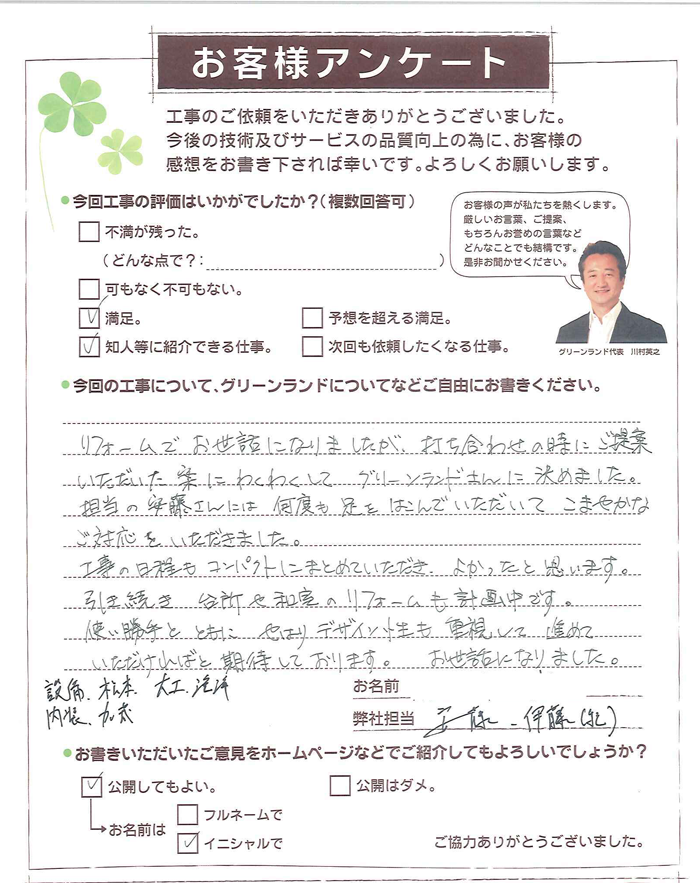 お客様アンケート
工事のご依頼をいただきありがとうございました。
今後の技術及びサービスの品質向上の為に、お客様の
感想をお書き下されば幸いです。よろしくお願いします。
●今回工事の評価はいかがでしたか？（複数回答可）
お客様の声が私たちを熱くします。
厳しいお言葉、ご提案、
もちろんお誉めの言葉など
どんなことでも結構です。
是非お聞かせください。
□不満が残った。
（どんな点で？：）
□可もなく不可もない。
☑満足。 □予想を超える満足。
☑知人等に紹介できる仕事。 □次回も依頼したくなる仕事。
グリーンランド代表 川村英之
●今回の工事について、グリーンランドについてなどご自由にお書きください。
リフォームでお世話になりましたが、打ち合わせの時にご提案
いただいた案にわくわくして グリーンランドさんに決めました。
担当の安藤さんには何度も足をはこんでいただいて こまやかな
ご対応をいただきました。
工事の日程もコンパクトにまとめていただき よかったと思います。
引き続き 台所や和室のリフォームも計画中です。
使い勝手とともに やはりデザイン性も重視して進めて
いただければと期待しております。 お世話になりました。
設備、松本 大工、
内装、 お名前
弊社担当 安藤、伊藤
●お書きいただいたご意見をホームページなどでご紹介してもよろしいでしょうか？
☑公開してもよい。 □公開はダメ。
→お名前は □フルネームで
☑イニシャルで
ご協力ありがとうございました。